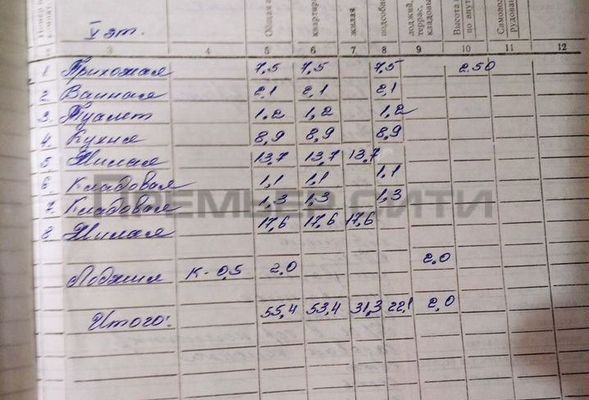 Общая
квартир
жилая
подсобн
лоджий,
террас,
кладовы
Высота
по внут
Самово
рудован
V эт.
3 4 5 6 7 8 9 10 11 12
1 Прихожая 7,5 7,5 7,5 2.50
2 Ванная 2,1 2,1 2,1
3. Туалет 1,2 1,2 1,2
4. Кухня 8,9 8,9 8,9
5 Жилая 13,7 13,7 13,7
6 Кладовая 1,1 1,1 1,1
7. Кладовая 1,3 1,3 1,3
ПРЕМЬЕР СИТИ
8. Жилая 17,6 17,6 17,6
Лоджия К-0,5 2.0 2,0
Итого: 55,4 53,4 31,3 22,1 2,0